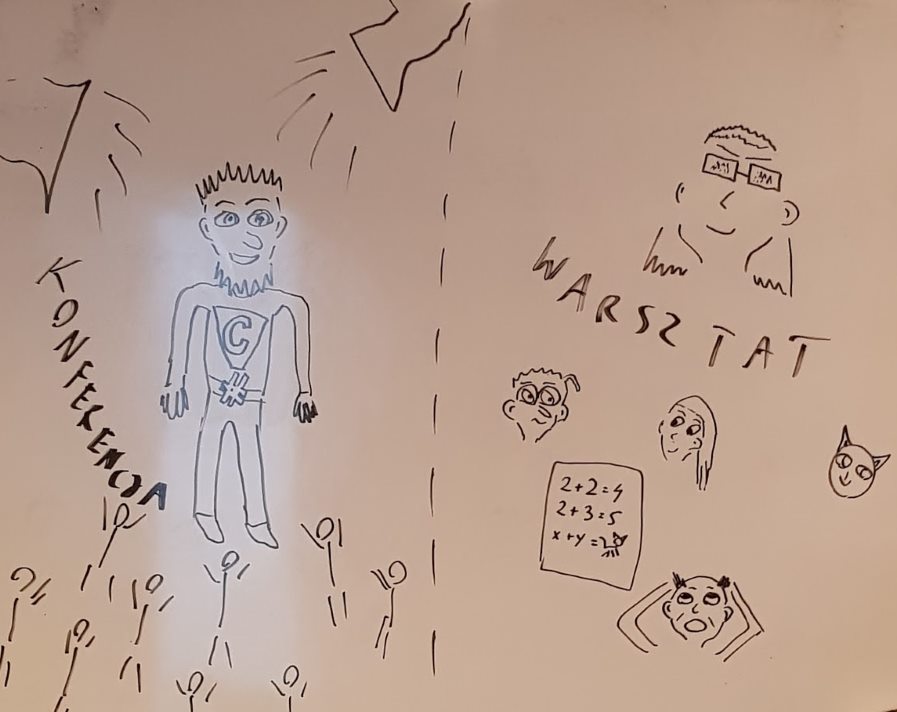 KONFERENCJA
C
#
WARSZTAT
2+2=4
2+3=5
x+y=